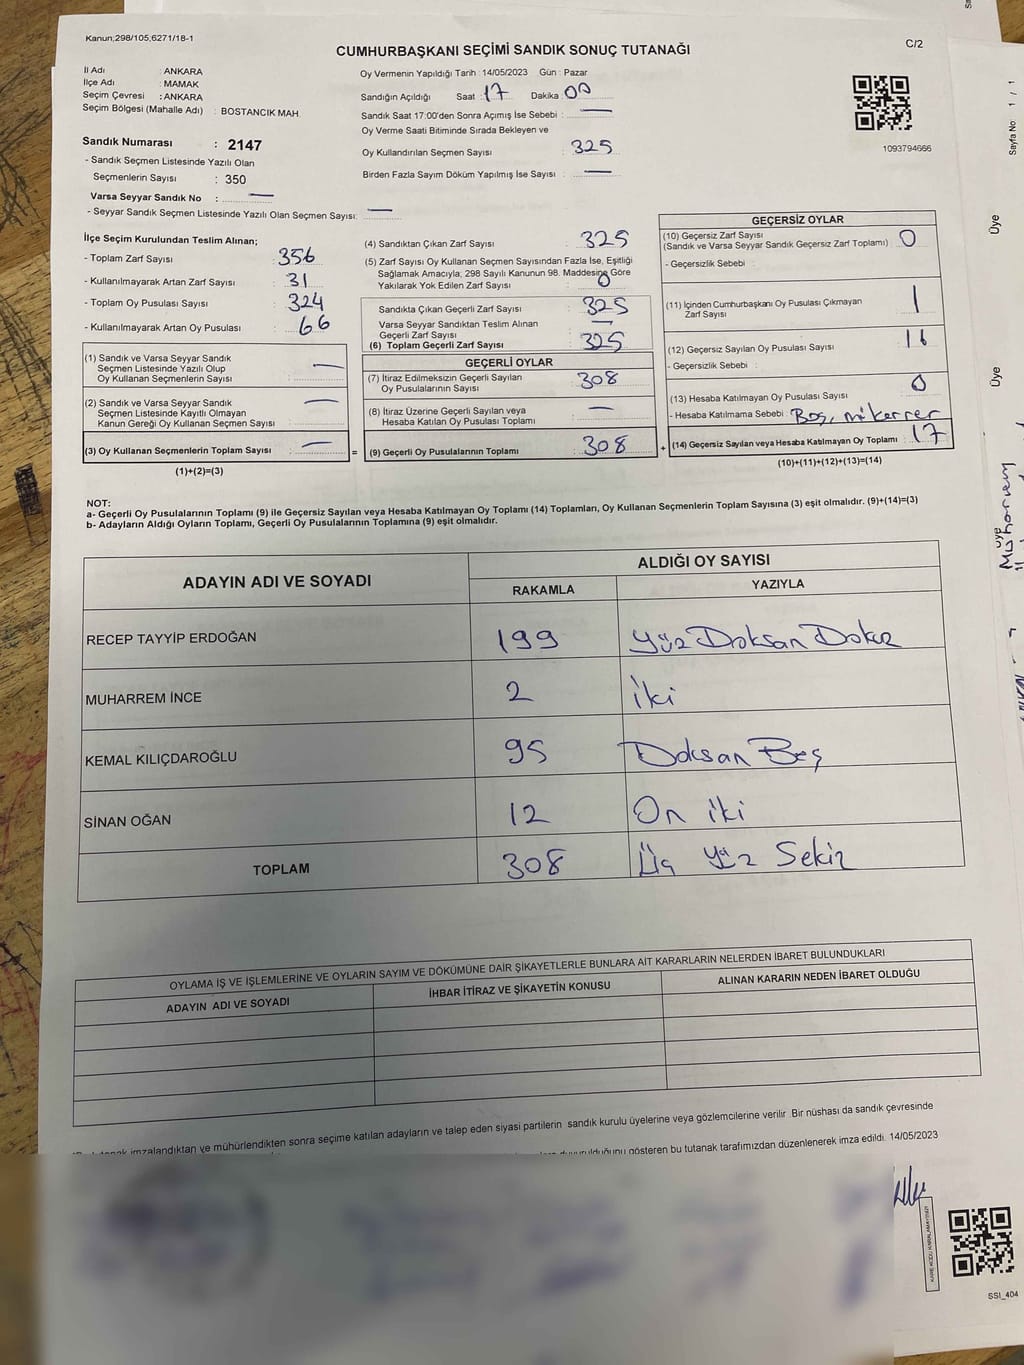 Kanun;298/105,6271/18-1
C/2
CUMHURBAŞKANI SEÇİMİ SANDIK SONUÇ TUTANAĞI
İl Adı : ANKARA
İlçe Adı : MAMAK
Seçim Çevresi : ANKARA
Seçim Bölgesi (Mahalle Adı) : BOSTANCIK MAH.
Sandık Numarası : 2147
- Sandık Seçmen Listesinde Yazılı Olan
Seçmenlerin Sayısı : 350
Varsa Seyyar Sandık No : —
- Seyyar Sandık Seçmen Listesinde Yazılı Olan Seçmen Sayısı: —
Oy Vermenin Yapıldığı Tarih : 14/05/2023 Gün : Pazar
Sandığın Açıldığı Saat : 17 Dakika 00
Sandık Saat 17:00'den Sonra Açımış İse Sebebi : —
Oy Verme Saati Bitiminde Sırada Bekleyen ve
Oy Kullandırılan Seçmen Sayısı : 325
Birden Fazla Sayım Döküm Yapılmış İse Sayısı : —
1093794666
İlçe Seçim Kurulundan Teslim Alınan;
- Toplam Zarf Sayısı : 356
- Kullanılmayarak Artan Zarf Sayısı : 31
- Toplam Oy Pusulası Sayısı : 324
- Kullanılmayarak Artan Oy Pusulası : 66
(1) Sandık ve Varsa Seyyar Sandık
Seçmen Listesinde Yazılı Olup
Oy Kullanan Seçmenlerin Sayısı : —
(2) Sandık ve Varsa Seyyar Sandık
Seçmen Listesinde Kayıtlı Olmayan
Kanun Gereği Oy Kullanan Seçmen Sayısı : —
(3) Oy Kullanan Seçmenlerin Toplam Sayısı : —
(1)+(2)=(3)
=
(4) Sandıktan Çıkan Zarf Sayısı : 325
(5) Zarf Sayısı Oy Kullanan Seçmen Sayısından Fazla İse, Eşitliği
Sağlamak Amacıyla; 298 Sayılı Kanunun 98. Maddesine Göre
Yakılarak Yok Edilen Zarf Sayısı : 0
Sandıkta Çıkan Geçerli Zarf Sayısı : 325
Varsa Seyyar Sandıktan Teslim Alınan
Geçerli Zarf Sayısı : —
(6) Toplam Geçerli Zarf Sayısı : 325
GEÇERLİ OYLAR
(7) İtiraz Edilmeksizin Geçerli Sayılan
Oy Pusulalarının Sayısı : 308
(8) İtiraz Üzerine Geçerli Sayılan veya
Hesaba Katılan Oy Pusulası Toplamı : —
(9) Geçerli Oy Pusulalarının Toplamı : 308
+
GEÇERSİZ OYLAR
(10) Geçersiz Zarf Sayısı
(Sandık ve Varsa Seyyar Sandık Geçersiz Zarf Toplamı) : 0
- Geçersizlik Sebebi :
(11) İçinden Cumhurbaşkanı Oy Pusulası Çıkmayan
Zarf Sayısı : 1
(12) Geçersiz Sayılan Oy Pusulası Sayısı : 16
- Geçersizlik Sebebi :
(13) Hesaba Katılmayan Oy Pusulası Sayısı : 0
- Hesaba Katılmama Sebebi : Boş, mükerrer
(14) Geçersiz Sayılan veya Hesaba Katılmayan Oy Toplamı : 17
(10)+(11)+(12)+(13)=(14)
NOT:
a- Geçerli Oy Pusulalarının Toplamı (9) ile Geçersiz Sayılan veya Hesaba Katılmayan Oy Toplamı (14) Toplamları, Oy Kullanan Seçmenlerin Toplam Sayısına (3) eşit olmalıdır. (9)+(14)=(3)
b- Adayların Aldığı Oyların Toplamı, Geçerli Oy Pusulalarının Toplamına (9) eşit olmalıdır.
ADAYIN ADI VE SOYADI ALDIĞI OY SAYISI
RAKAMLA YAZIYLA
RECEP TAYYİP ERDOĞAN 199 Yüz Doksan Dokuz
MUHARREM İNCE 2 İki
KEMAL KILIÇDAROĞLU 95 Doksan Beş
SİNAN OĞAN 12 On iki
TOPLAM 308 Üç Yüz Sekiz
OYLAMA İŞ VE İŞLEMLERİNE VE OYLARIN SAYIM VE DÖKÜMÜNE DAİR ŞİKAYETLERLE BUNLARA AİT KARARLARIN NELERDEN İBARET BULUNDUKLARI
ADAYIN ADI VE SOYADI İHBAR İTİRAZ VE ŞİKAYETİN KONUSU ALINAN KARARIN NEDEN İBARET OLDUĞU
imzalandıktan ve mühürlendikten sonra seçime katılan adayların ve talep eden siyasi partilerin sandık kurulu üyelerine veya gözlemcilerine verilir. Bir nüshası da sandık çevresinde
duyurulduğunu gösteren bu tutanak tarafımızdan düzenlenerek imza edildi. 14/05/2023
SSI_404
Sayfa No: 1 / 1
Üye
Üye
Üye
Muharrem